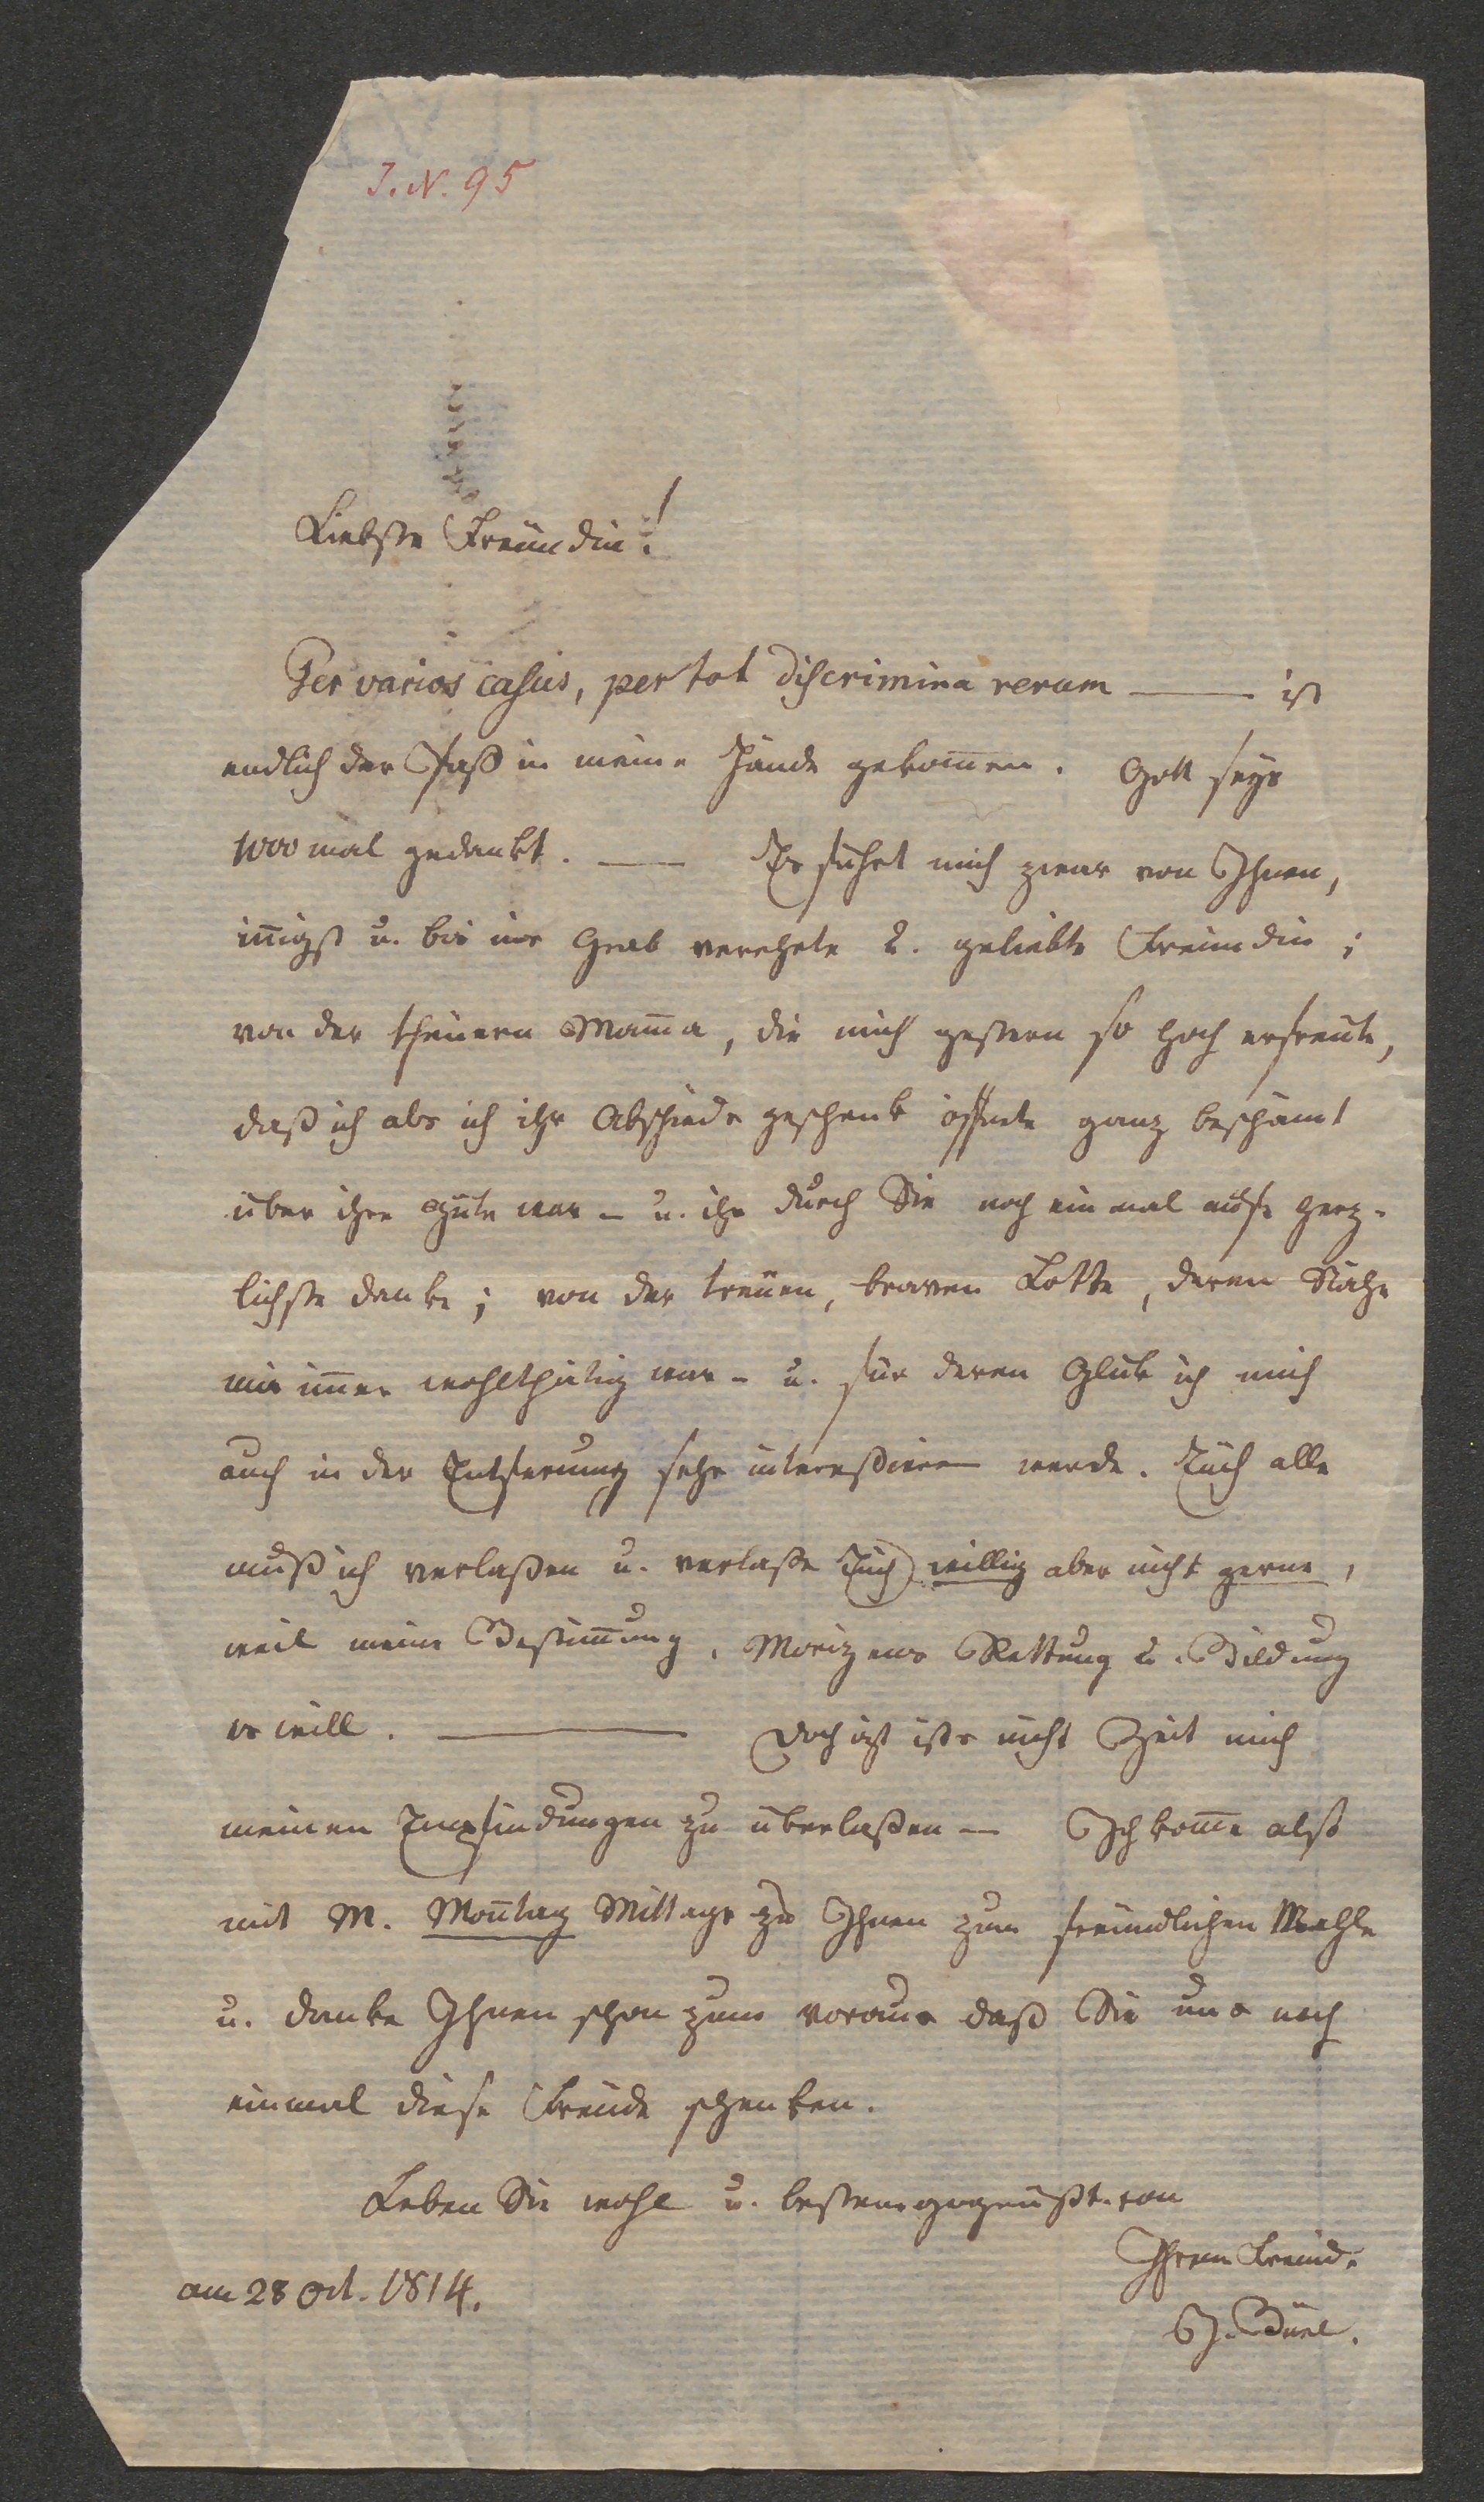 J. N. 95
Liebste Freundin!
Per varios casus, per tot discrimina rerum — ist
endlich der Paß in meine Hände gekom̄en. Gott seys
1000 mal gedankt. — Er führt mich zwar von Ihnen,
in̄igst u. bis ins Grab verehrte u. geliebte Freundin;
von der theuern Mam̄a, die mich gestern so hoch erfreute,
daß ich als ich ihr Abschieds geschenk öffnete ganz beschämt
über ihre Güte war – u. ihr durch Sie noch ein mal aufs herz-
lichste danke; von der treuen, braven Lotte, deren Nähe
mir im̄er wohlthätig war – u. für deren Glük ich mich
auch in der Entfernung sehr intereßieren werde. Euch alle
muß ich verlaßen u. verlaße Euch willig aber nicht gerne,
weil meine Bestim̄ung, Morizens Rettung u. Bildung
es will. — Doch izt ists nicht Zeit mich
meinen Empfindungen zu überlaßen — Ich kom̄e also
mit M. Mon̄tag Mittags zu Ihnen zum freundlichen Mahle
u. danke Ihnen schon zum voraus daß Sie uns noch
einmal diese Freude schenken.
Leben Sie wohl u. bestens gegrüßt von
Ihrem Freund.
am 28 Oct. 1814.
J. Büel.